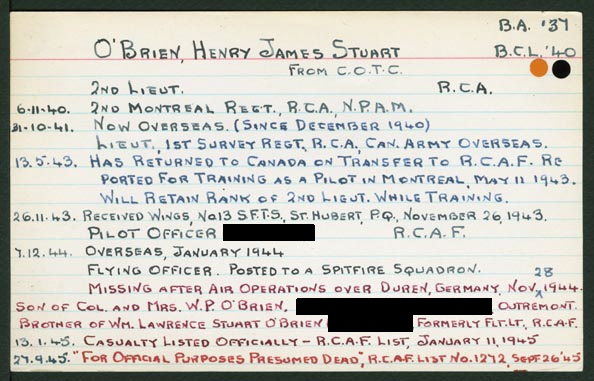 B.A. '37
O'BRIEN, HENRY JAMES STUART B.C.L. '40
FROM C.O.T.C.
2ND LIEUT. R.C.A.
6-11-40. 2ND MONTREAL REGT., R.C.A., N.P.A.M.
31-10-41. NOW OVERSEAS. (SINCE DECEMBER 1940)
LIEUT., 1ST SURVEY REGT, R.C.A., CAN. ARMY OVERSEAS.
13.5.43. HAS RETURNED TO CANADA ON TRANSFER TO R.C.A.F. RE
PORTED FOR TRAINING AS A PILOT IN MONTREAL, MAY 11 1943.
WILL RETAIN RANK OF 2ND LIEUT. WHILE TRAINING.
26.11.43. RECEIVED WINGS, NO13 S.F.T.S., ST. HUBERT, P.Q., NOVEMBER 26, 1943.
PILOT OFFICER R.C.A.F.
7.12.44. OVERSEAS, JANUARY 1944
FLYING OFFICER. POSTED TO A SPITFIRE SQUADRON.
MISSING AFTER AIR OPERATIONS OVER DUREN, GERMANY, NOV. 28 1944.
SON OF COL. AND MRS. W.P. O'BRIEN, OUTREMONT.
BROTHER OF WM. LAWRENCE STUART O'BRIEN ( FORMERLY FLT. LT., R.C.A.F.
13.1.45. CASUALTY LISTED OFFICIALLY - R.C.A.F. LIST, JANUARY 11, 1945
27.9.45. "FOR OFFICIAL PURPOSES PRESUMED DEAD", R.C.A.F. LIST NO. 1272, SEPT 26'45